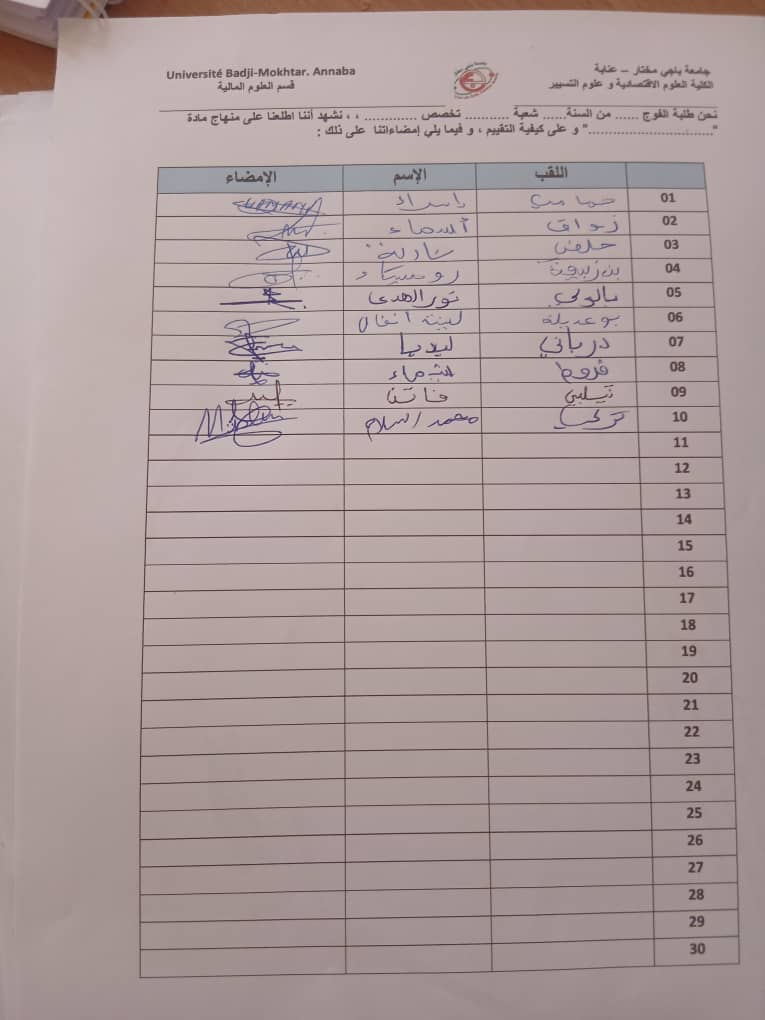 Université Badji-Mokhtar. Annaba
قسم العلوم المالية
جامعة باجي مختار – عنابة
الكلية العلوم الاقتصادية و علوم التسيير
نحن طلبة الفوج ...... من السنة...... شعبة ........... تخصص ............. ، ، نشهد أننا اطلعنا على منهاج مادة
"............................." و على كيفية التقييم ، و فيما يلي إمضاءاتنا على ذلك :
اللقب الإسم الإمضاء
01 إسراء
02 زواق أسماء
03 شادية
04
05 نور الهدى
06 لبينة أنفال
07 درباني ليديا
08 قروط
09 فاتن
10 محمد السلام
11
12
13
14
15
16
17
18
19
20
21
22
23
24
25
26
27
28
29
30